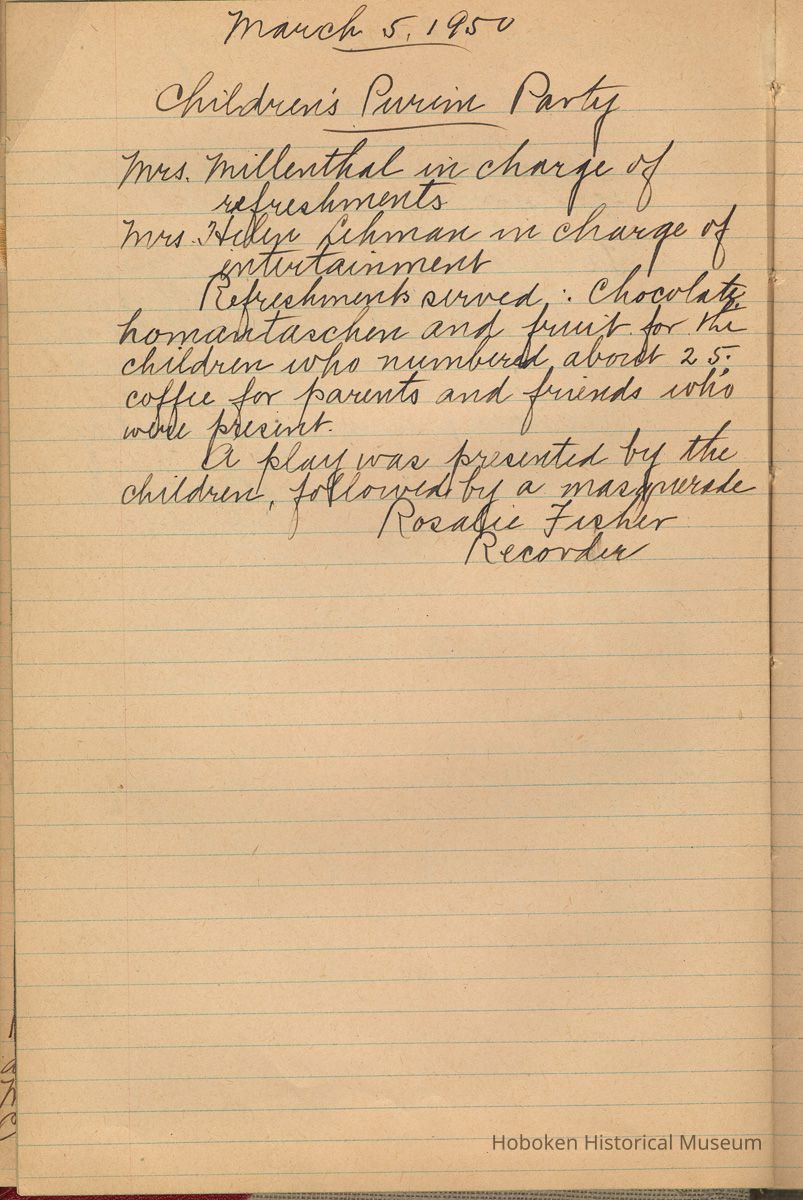 March 5, 1950
Children's Purim Party
Mrs. Millenthal in charge of
refreshments
Mrs. Helen Lehman in charge of
entertainment
Refreshments served : Chocolate,
homantaschen and fruit for the
children who numbered about 25.
coffee for parents and friends who
were present.
A play was presented by the
children, followed by a masquerade
Rosalie Fisher
Recorder
Hoboken Historical Museum